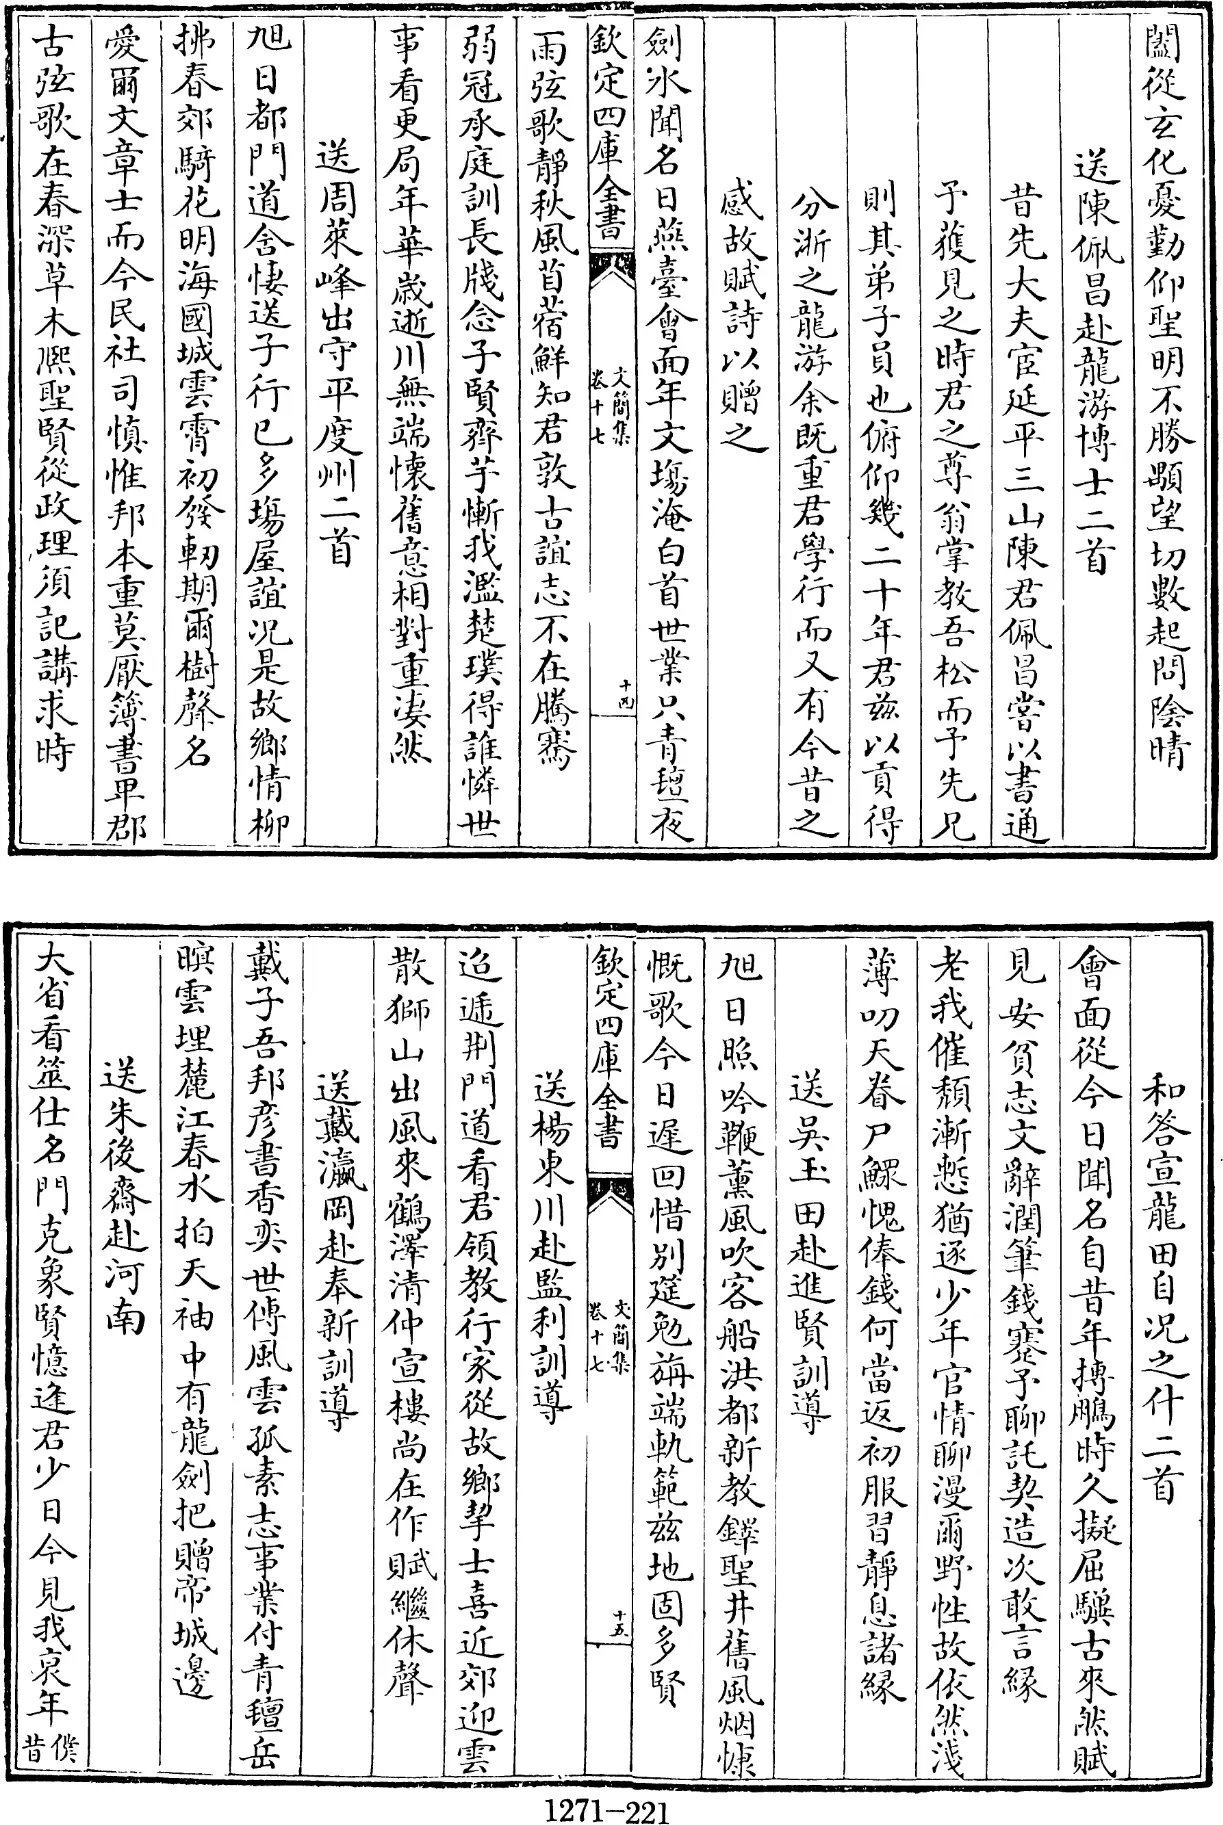 闔從玄化憂勤仰聖明不勝顒望切數起問陰晴
送陳佩昌赴龍游博士二首
昔先大夫宦延平三山陳君佩昌嘗以書通
予獲見之時君之尊翁掌教吾松而予先兄
則其弟子員也俯仰幾二十年君兹以貢得
分浙之龍游余既重君學行而又有今昔之
感故賦詩以贈之
劍水聞名日燕臺會面年文場淹白首世業只青氊夜
欽定四庫全書
文簡集
卷十七
十四
雨弦歌靜秋風苜蓿鮮知君敦古誼志不在騰騫
弱冠承庭訓長牋念子賢齊竽慚我濫楚璞得誰憐世
事看更局年華歲逝川無端懷舊意相對重淒然
送周萊峰出守平度州二首
旭日都門道含悽送子行已多場屋誼况是故鄉情柳
拂春郊騎花明海國城雲霄初發軔期爾樹聲名
愛爾文章士而今民社司慎惟邦本重莫厭簿書卑郡
古弦歌在春深草木熙聖賢從政理須記講求時
和答宣龍田自况之什二首
會面從今日聞名自昔年摶鵬時久擬屈驥古來然賦
見安貧志文辭潤筆錢蹇予聊託契造次敢言緣
老我催頹漸慙猶逐少年官情聊漫爾野性故依然淺
薄叨天眷尸鰥愧俸錢何當返初服習靜息諸緣
送吳玉田赴進賢訓導
旭日照吟鞭薰風吹客船洪都新教鐸聖井舊風烟慷
慨歌今日遲回惜别筵勉旃端軌範兹地固多賢
欽定四庫全書
文簡集
卷十七
十五
送楊東川赴監利訓導
迢遞荆門道看君領教行家從故鄉挈士喜近郊迎雲
散獅山出風來鶴澤清仲宣樓尚在作賦繼休聲
送戴瀛岡赴奉新訓導
戴子吾邦彦書香奕世傳風雲孤素志事業付青氊岳
暝雲埋麓江春水拍天袖中有龍劍把贈帝城邊
送朱後齋赴河南
大省看筮仕名門克象賢憶逢君少日今見我衰年僕
昔
1271-221